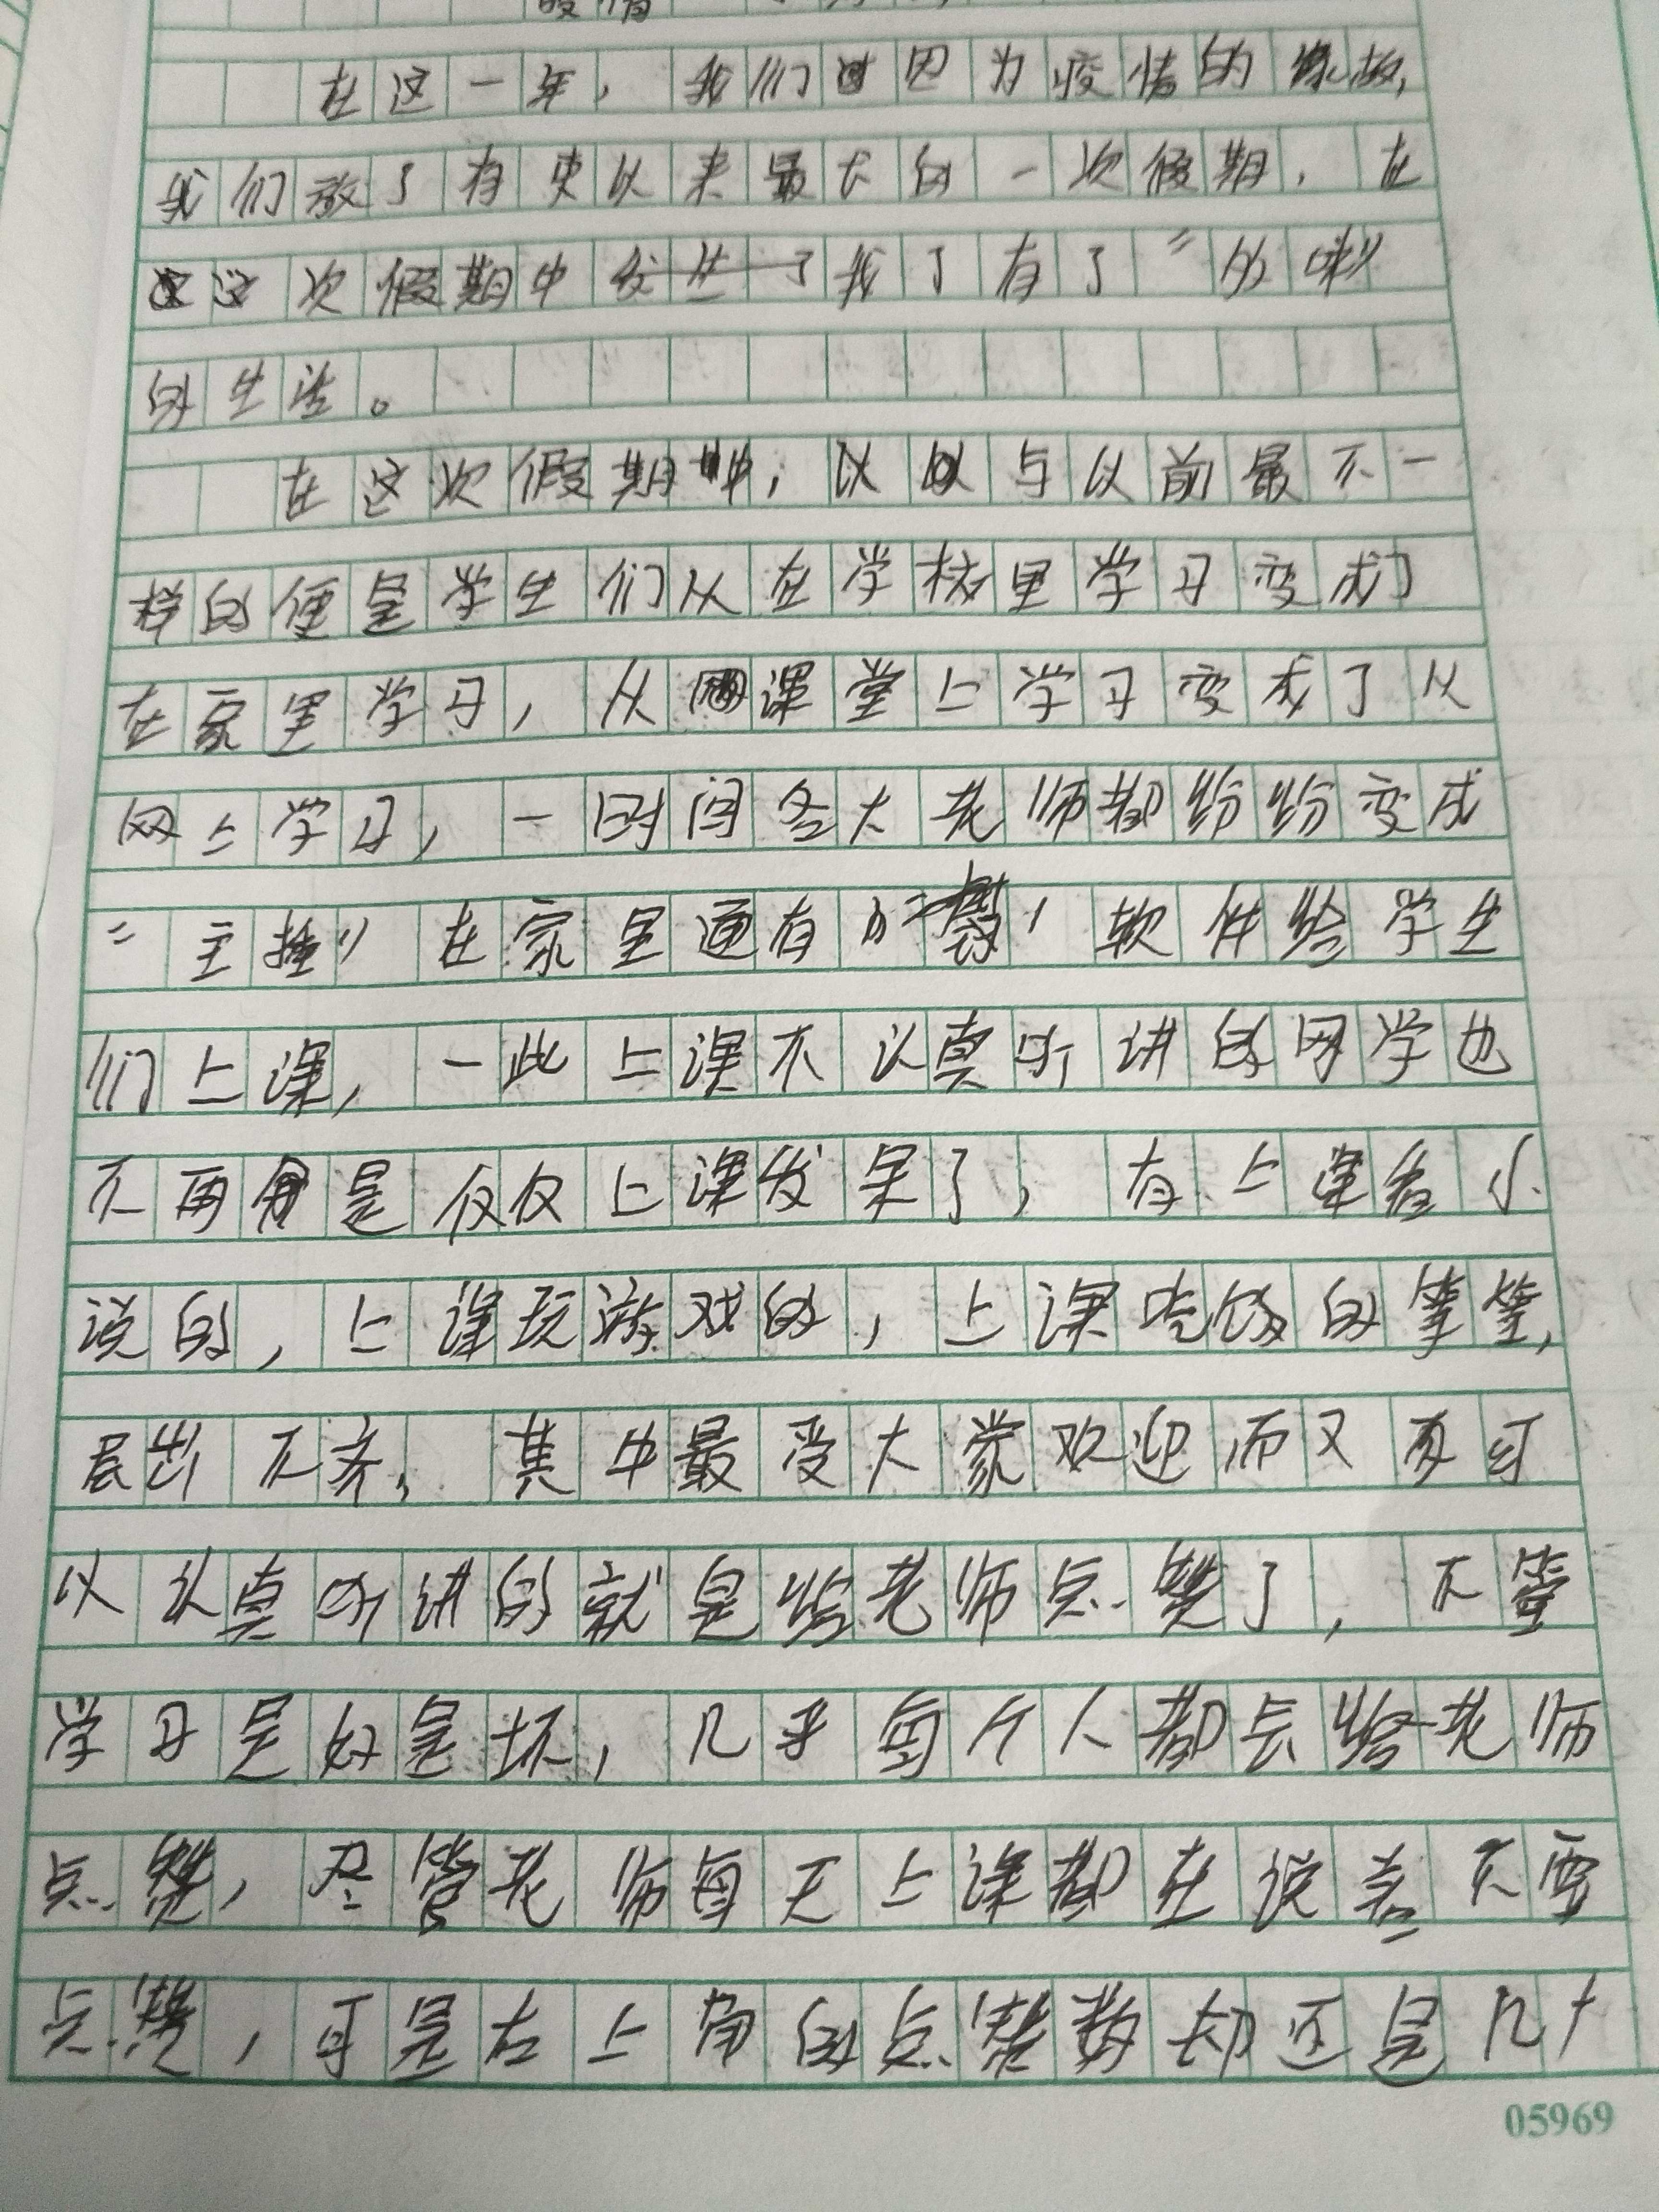 在这一年，我们因为疫情的缘故，
我们放了有史以来最大的一次假期，在
这次假期中我了有了“
的生活。
在这次假期中，以与以前最不一
样的便是学生们从在学校里学习变成了
在家里学习，从课堂上学习变成了从
网上学习，一时间各大老师都纷纷变成
“主播”在家里通有的软件给学生
们上课，一此上课不认真听讲的同学也
不再是仅仅上课发呆了，有上课看小
说的，上课玩游戏的，上课吃饭的等等，
层出不齐，其中最受大家欢迎而又可
以认真听讲的就是给老师点赞了，不管
学习是好是坏，几乎每个人都去给老师
点赞，尽管老师每天上课都在说着不要
点赞，可是右上角的点赞数却还是几十
05969